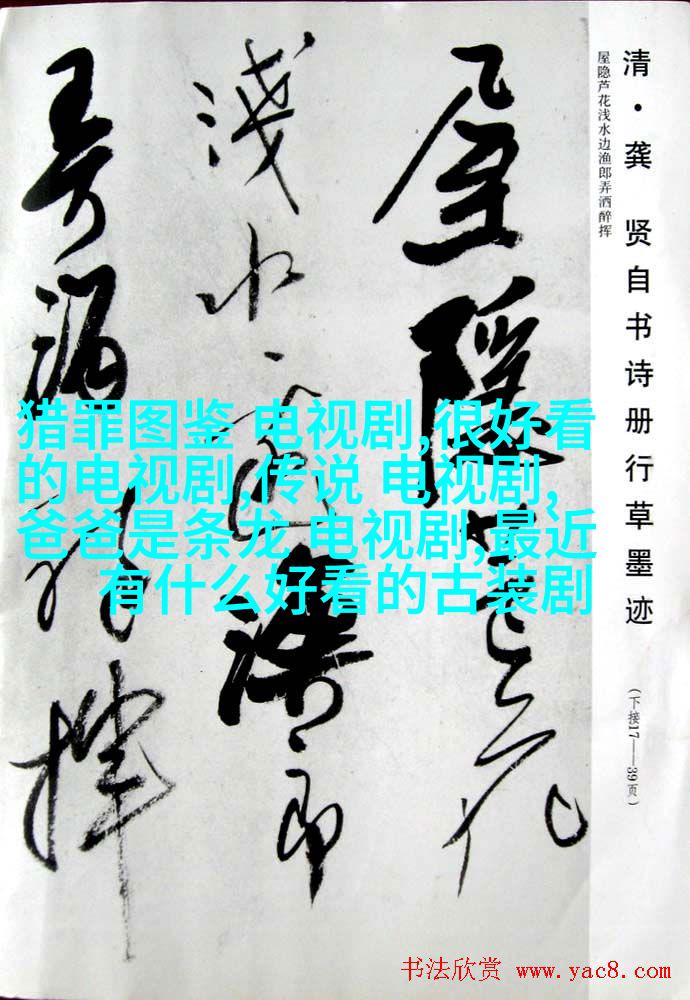 清·龚 贤自书诗册行草墨迹
(下接17——39页)
屋隐芦花浅水边渔郎弄洒醉挥
屋隱芦花
淺水邊漁郎
弄酒醉揮
猎罪图鉴 电视剧,很好看
的电视剧,传说 电视剧,
爸爸是条龙 电视剧,最近
有什么好看的古装剧
书法欣赏 www.yac8.com